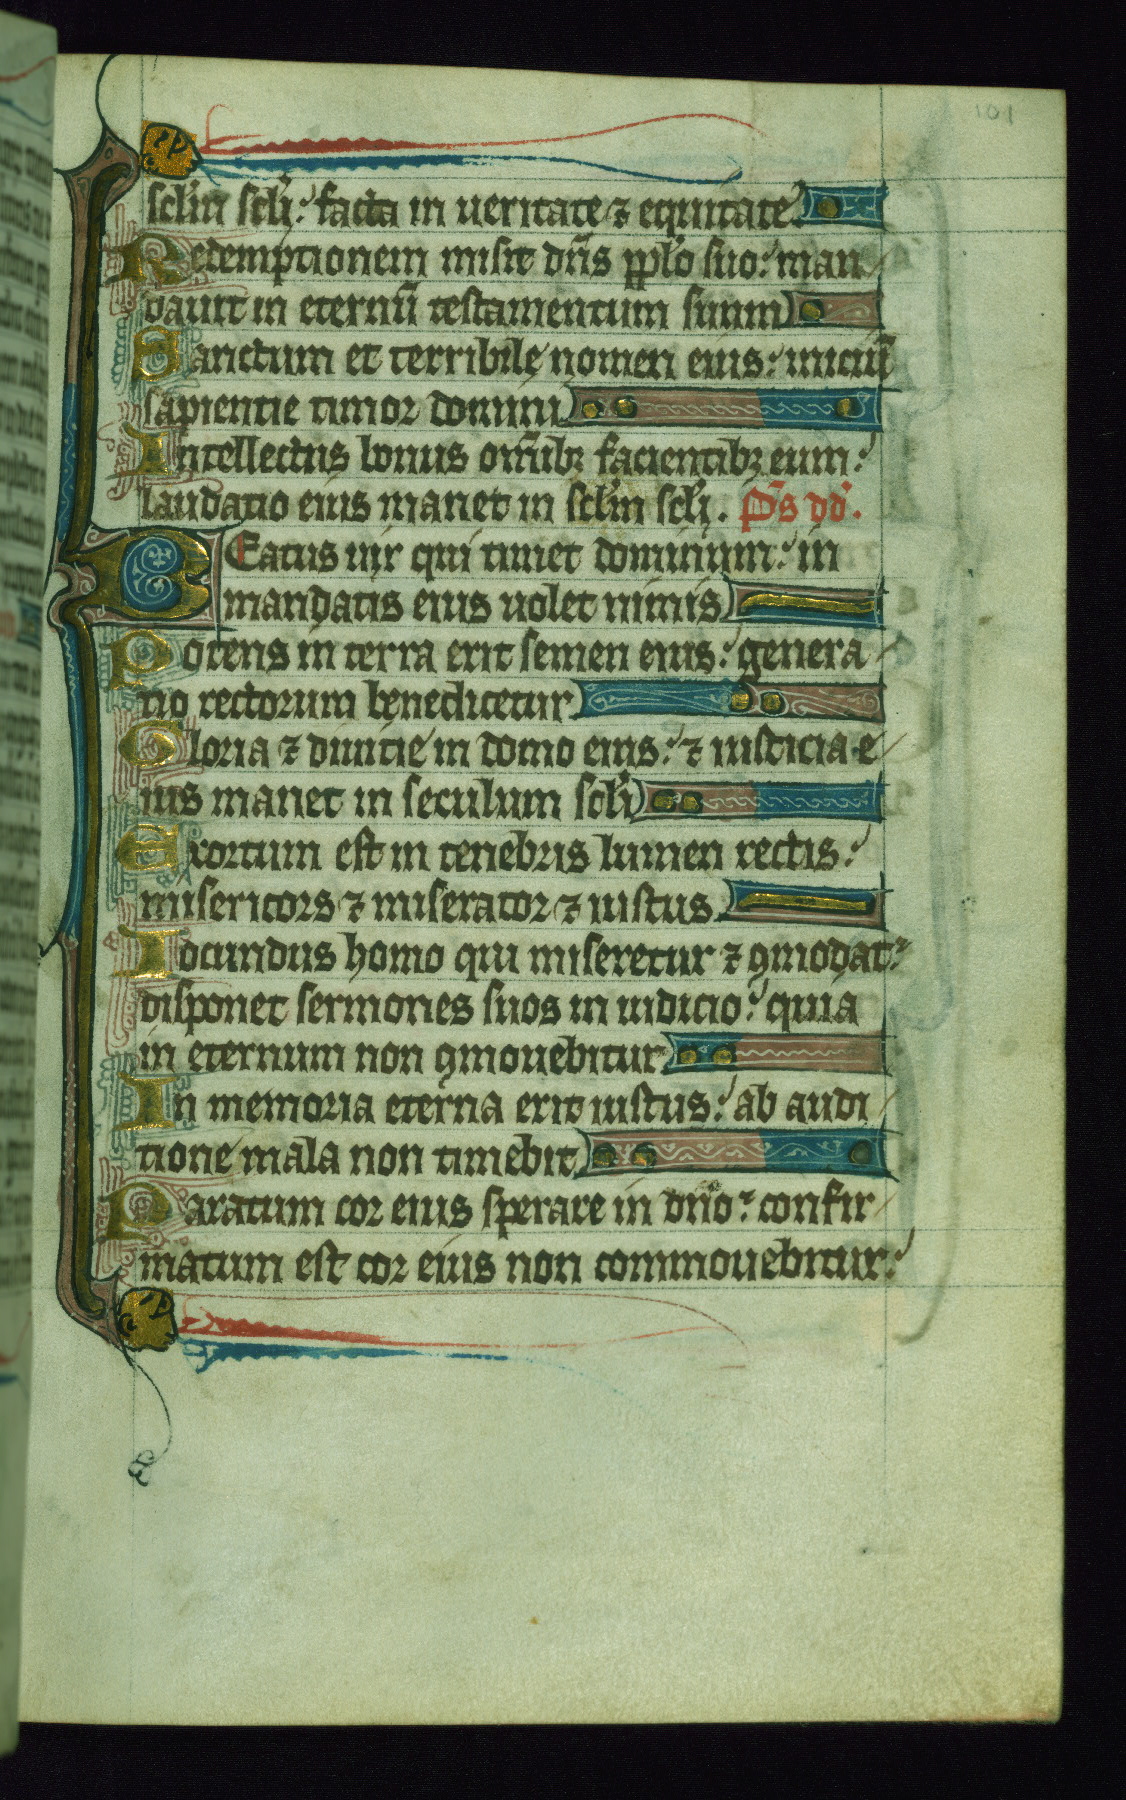 101
sclm̄ scli: facta in ueritate ⁊ equitate.
Redemptionem misit dn̄s pplo suo: man
dauit in eternū testamentum suum
Sanctum et terribile nomen eius: iniciū
sapientie timor domini
Intellectus bonus om̄ibꝫ facientibꝫ eum:
laudatio eius manet in sclm̄ scli. Ps dd.
BEatus uir qui timet dominum: in
mandatis eius uolet nimis
Potens in terra erit semen eius: genera
tio rectorum benedicetur
Gloria ⁊ diuitie in domo eius: ⁊ iusticia e
ius manet in seculum scli
Exortum est in tenebris lumen rectis:
misericors ⁊ miserator ⁊ iustus
Iocundus homo qui miseretur ⁊ ꝯmodat:
disponet sermones suos in iudicio: quia
in eternum non ꝯmouebitur
In memoria eterna erit iustus: ab audi
tione mala non timebit
Paratum cor eius sperare in dn̄o: confir
matum est cor eius non commouebitur: